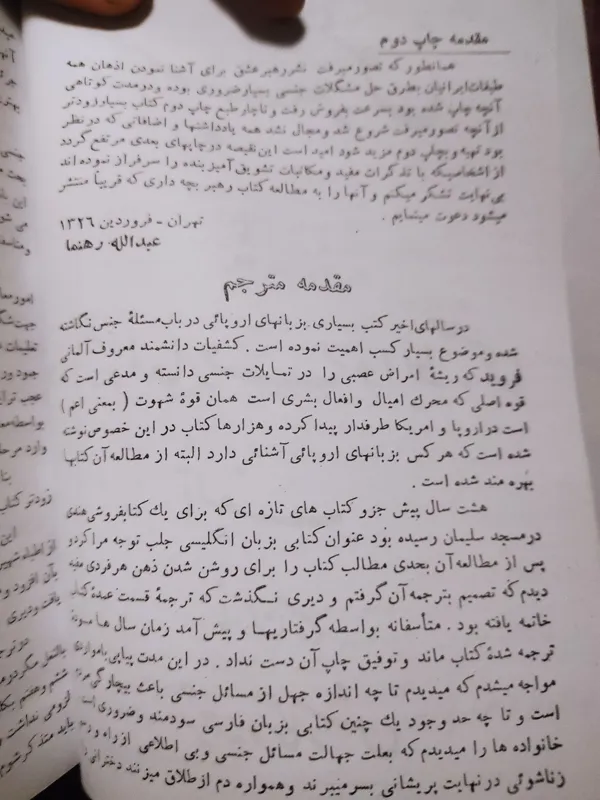 مقدمه چاپ دوم
همانطور که تصور میرفت نشر رهبر عشق برای آشنا نمودن اذهان همه
طبقات ایرانیان بطرق حل مشکلات جنسی بسیار ضروری بوده و در مدت کوتاهی
آنچه چاپ شده بود بسرعت بفروش رفت و ناچار طبع چاپ دوم کتاب بسیار زودتر
از آنچه تصور میرفت شروع شد و مجال نشد همه یادداشتها و اضافاتی که در نظر
بود تهیه و بچاپ دوم مزید شود امید است این نقیصه در چاپهای بعدی مرتفع گردد
از اشخاصیکه با تذکرات مفید و مکاتبات تشویق آمیز بنده را سرفراز نموده اند
بی نهایت تشکر میکنم و آنها را به مطالعه کتاب رهبر بچه داری که قریباً منتشر
میشود دعوت مینمایم .
تهران - فروردین ۱۳۲۶
عبدالله رهنما
مقدمه مترجم
در سالهای اخیر کتب بسیاری بزبانهای اروپائی در باب مسئلهٔ جنس نگاشته
شده و موضوع بسیار کسب اهمیت نموده است . کشفیات دانشمند معروف آلمانی
فروید که ریشهٔ امراض عصبی را در تمایلات جنسی دانسته و مدعی است که
قوه اصلی که محرك امیال و افعال بشری است همان قوهٔ شهوت ( بمعنی اعم )
است در اروپا و امریکا طرفدار پیدا کرده و هزارها کتاب در این خصوص نوشته
شده است که هر کس بزبانهای اروپائی آشنائی دارد البته از مطالعه آن کتابها
بهره مند شده است .
هشت سال پیش جزو کتاب های تازه ای که برای یك کتابفروشی هندی
در مسجد سلیمان رسیده بود عنوان کتابی بزبان انگلیسی جلب توجه مرا کرد و
پس از مطالعه آن بحدی مطالب کتاب را برای روشن شدن ذهن هر فردی مفید
دیدم که تصمیم بترجمه آن گرفتم و دیری نگذشت که ترجمهٔ قسمت عمدهٔ کتاب
خاتمه یافته بود . متأسفانه بواسطه گرفتاریها و پیش آمد زمان سال ها مسودهٔ
ترجمه شدهٔ کتاب ماند و توفیق چاپ آن دست نداد . در این مدت پیاپی بامواردی
مواجه میشدم که میدیدم تا چه اندازه جهل از مسائل جنسی باعث بیچارگی مردم
است و تا چه حد وجود یك چنین کتابی بزبان فارسی سودمند و ضروری است
خانواده ها را میدیدم که بعلت جهالت مسائل جنسی و بی اطلاعی از راه و رسم
زناشوئی در نهایت پریشانی بسر میبرند و همواره دم از طلاق میزنند دخترانی